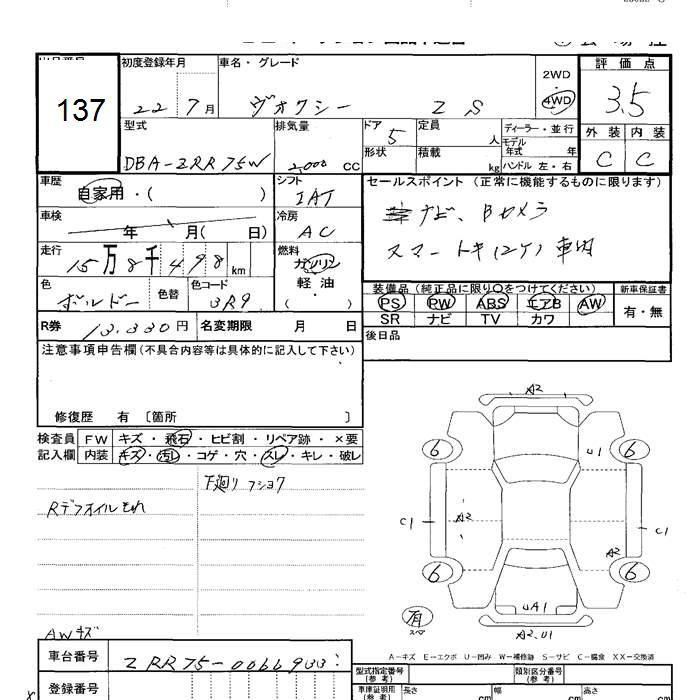 137
初度登録年月 車名・グレード 2WD 評価点
22 7月 ヴォクシー ZS 4WD 3.5
型式 排気量 ドア 5 定員 人 ディーラー・並行 外装 内装
DBA-ZRR75W 2,000 CC 形状 積載 kg モデル年式 年 ハンドル 左・右 C C
車歴 自家用・( ) シフト IAT セールスポイント (正常に機能するものに限ります)
車検 年 月( 日) 冷房 AC ナビ、Bカメラ
走行 15万8千498km 燃料 ガソリン・軽油・( ) スマートキー(2ケ)車内
色 ボルドー 色替 色コード 3R9
装備品 (純正品に限り○をつけてください) 新車保証書
PS PW ABS エアB AW 有・無
SR ナビ TV カワ
R券 13.330円 名変期限 月 日 後日品
注意事項申告欄(不具合内容等は具体的に記入して下さい)
修復歴 有 〔箇所 〕
検査員 FW キズ・飛石・ヒビ割・リペア跡・×要
記入欄 内装 キズ・汚レ・コゲ・穴・スレ・キレ・破レ
下廻リフショク
Rデフオイルもれ
AWキズ
A2
6 U1 6
C1 A2 C1
A2
6 6
有 スペア UA1
A2.U1
A-キズ E-エクボ U-凹み W-補修跡 S-サビ C-腐食 XX-交換済
車台番号 ZRR75-0066933
型式指定番号(参考) 類別区分番号(参考)
登録番号 車庫証明用(参考) 長さ cm 幅 cm 高さ cm